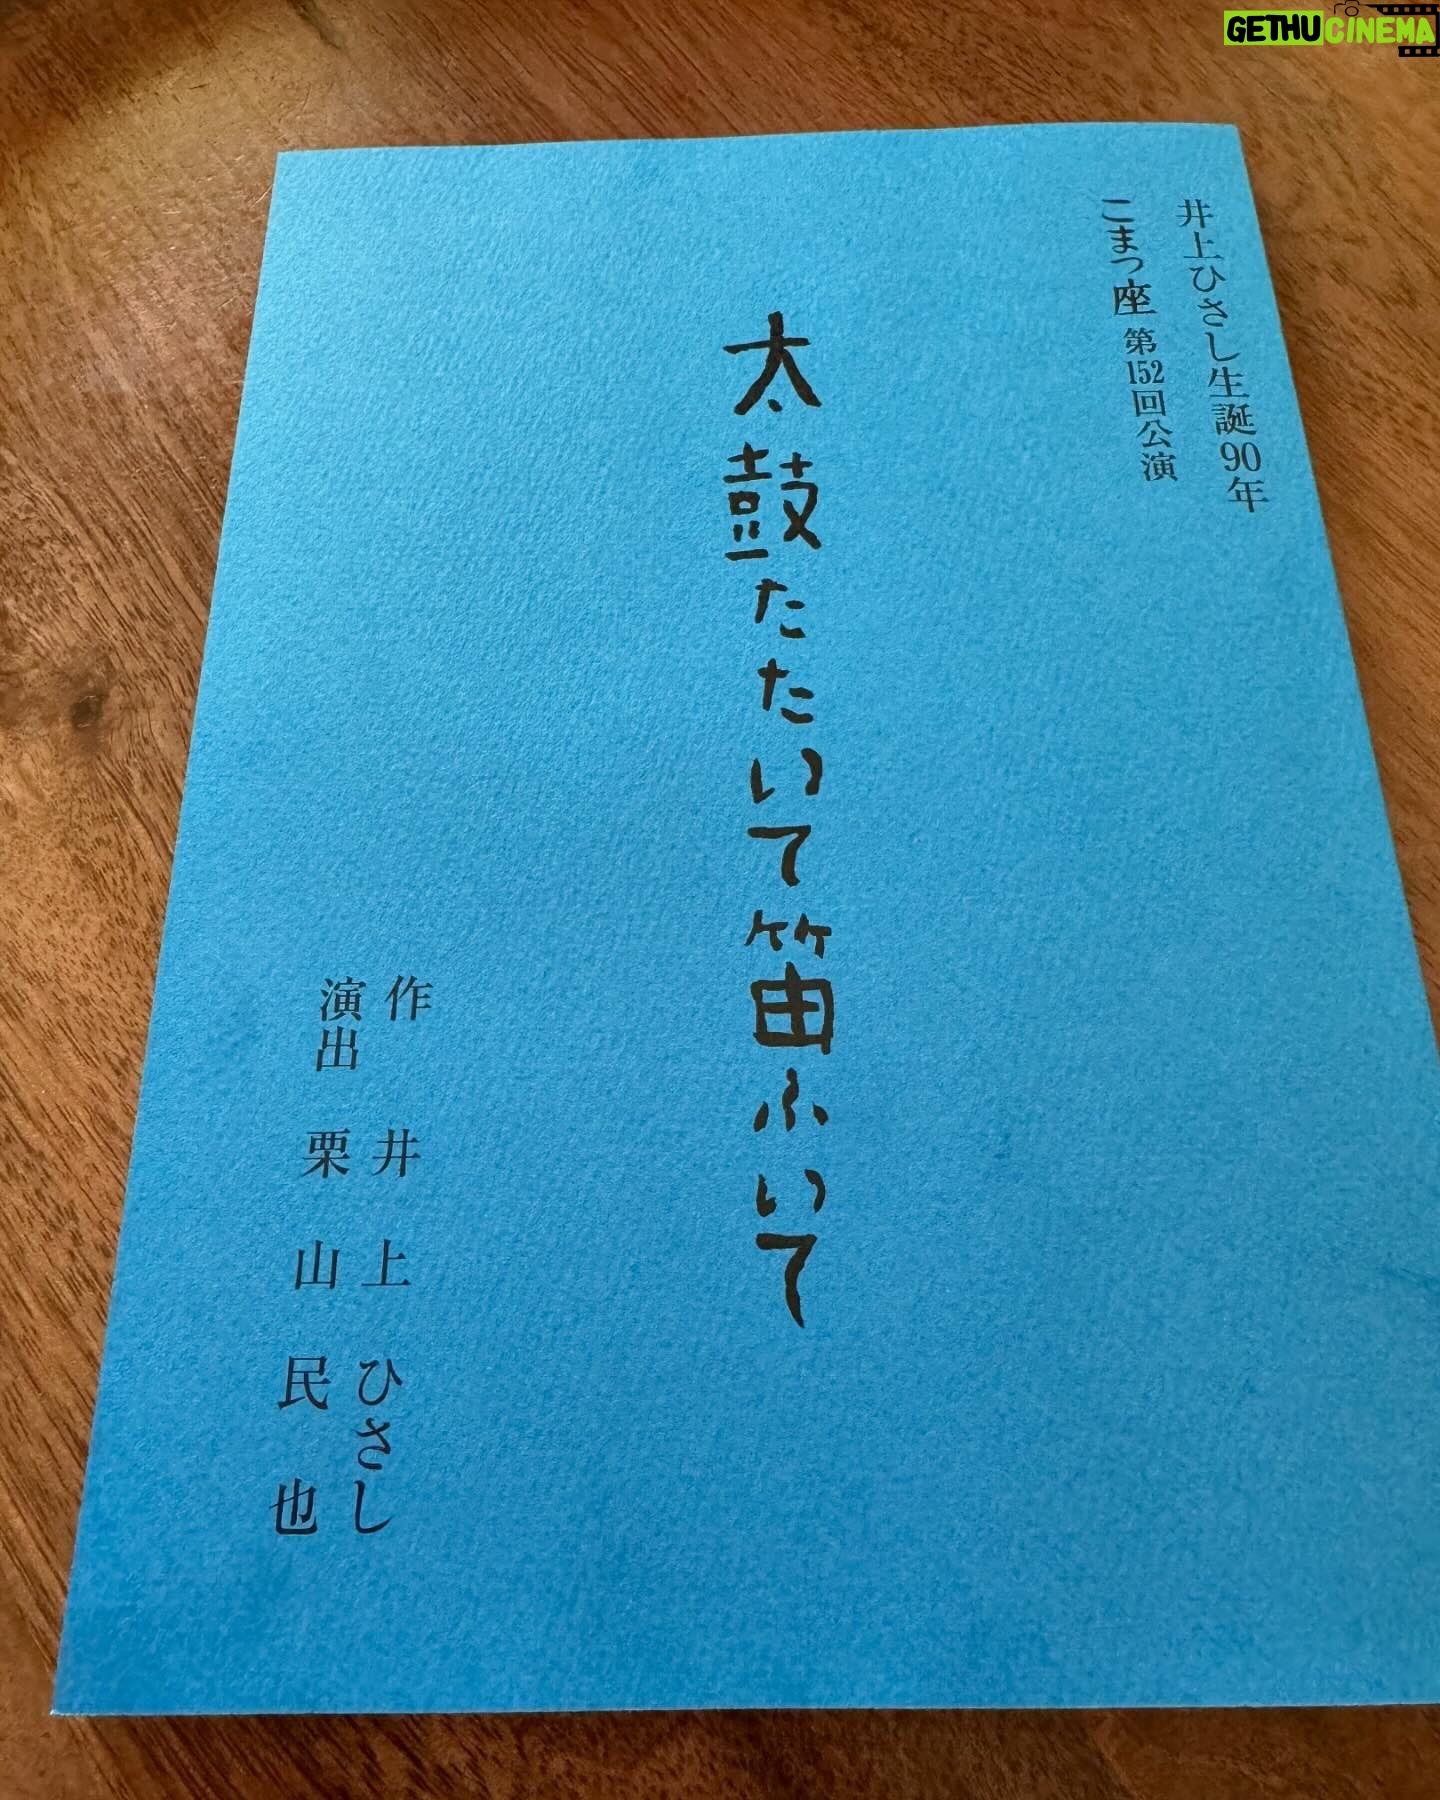 GETHUCINEMA
井上ひさし生誕90年
こまつ座 第152回公演
太鼓たたいて笛ふいて
作 井上ひさし
演出 栗山民也